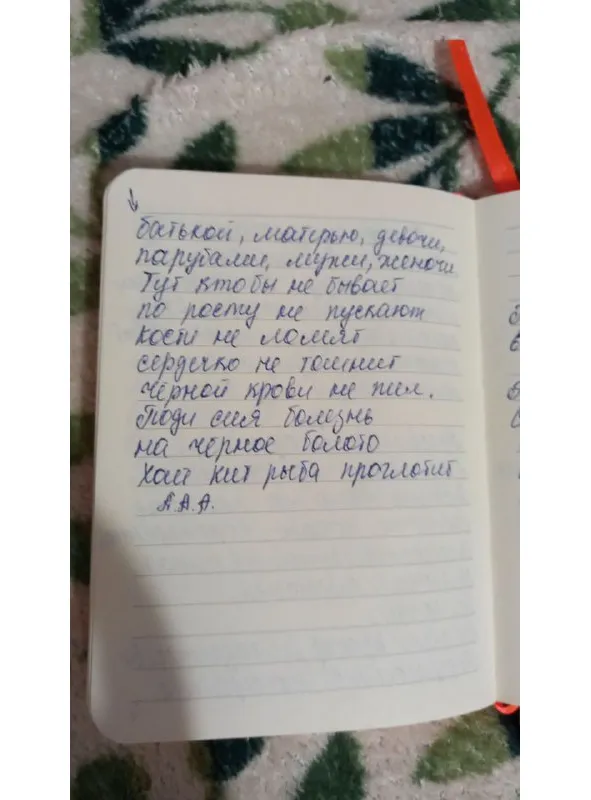 батькой, матерью, девочи,
парубами, мужи, женочи
Тут кто бы не бывает
по росту не пускают
кости не ломят
сердечко не тошнит
черной крови не пил.
Поди сия болезнь
на черное болото
Хай кит рыба проглотит
А.А.А.